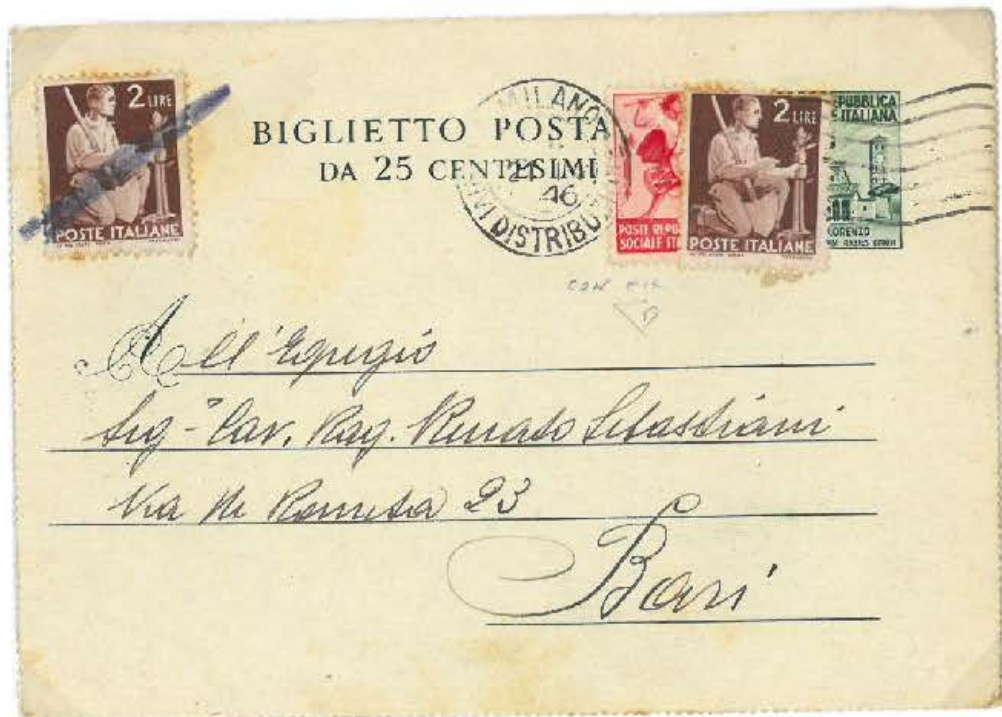 2 LIRE
POSTE ITALIANE
BIGLIETTO POSTA
DA 25 CENTESIMI
MILANO
46
DISTRIBU
POSTE REPU
SOCIALE IT
2 LIRE
POSTE ITALIANE
PUBBLICA
ITALIANA
LORENZO
All'Egregio
Sig. Cav. Rag. Renato Sebastiani
Via 23
Bari